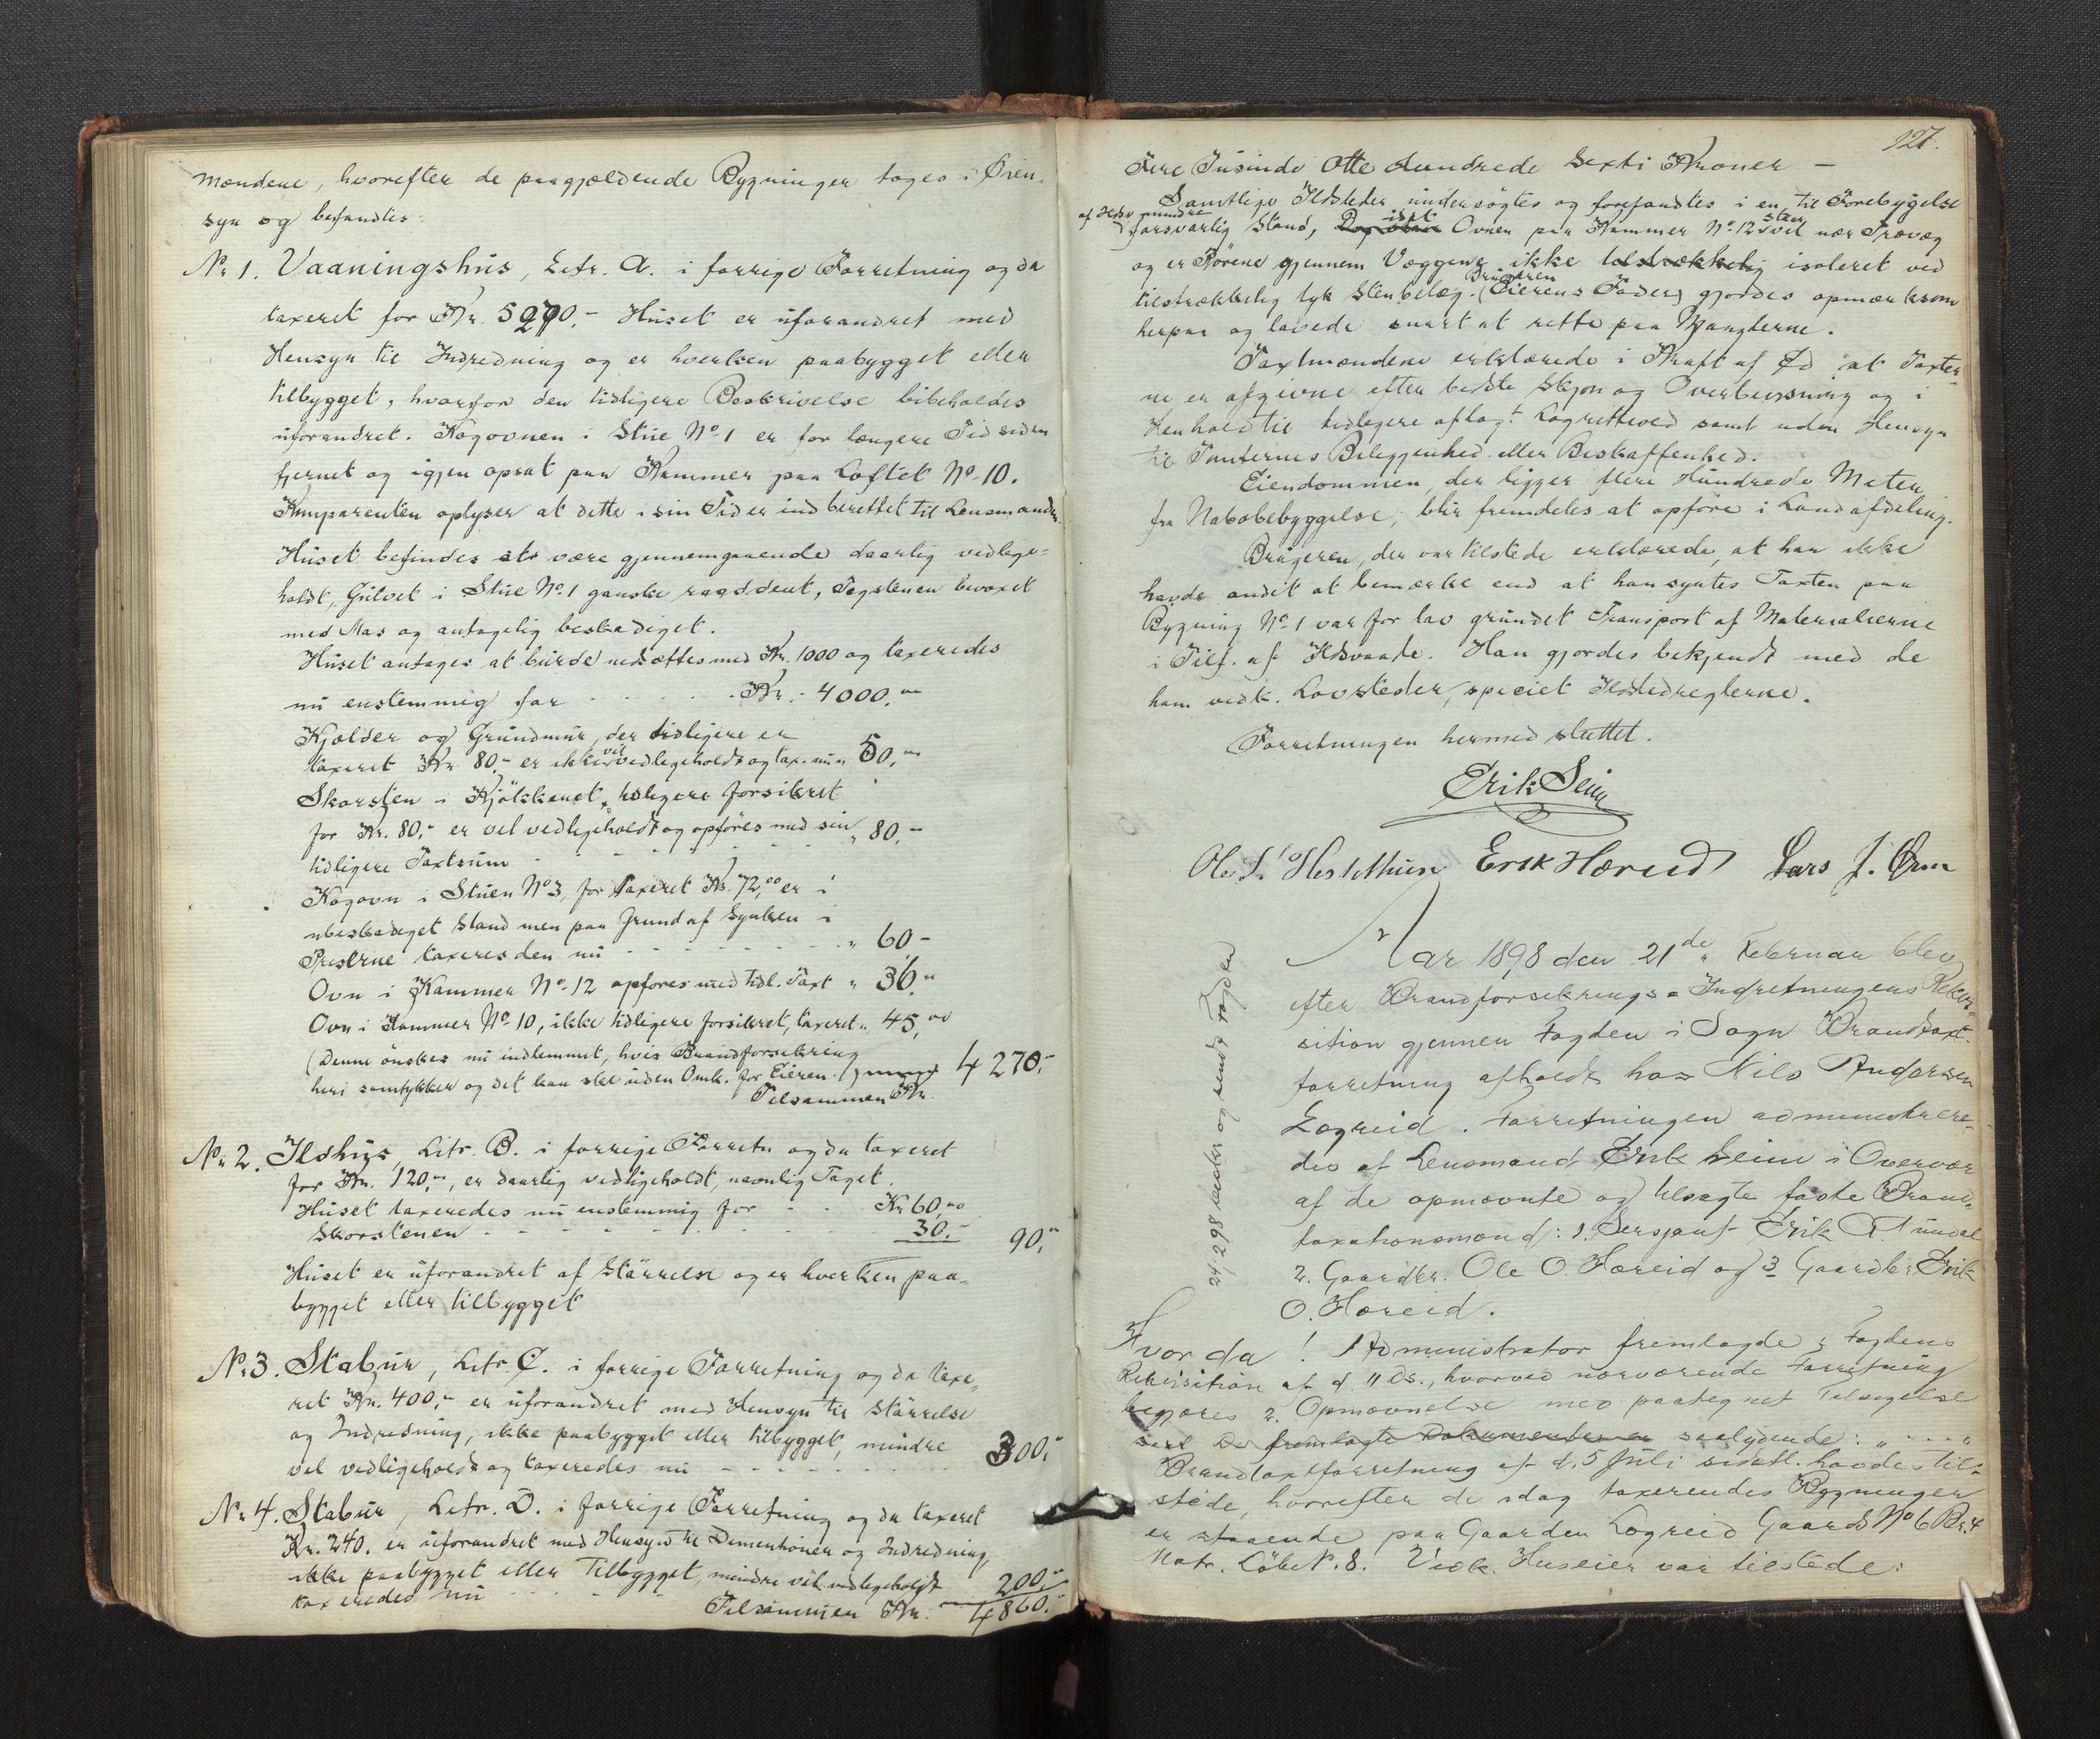 mændene, hvorefter de paagjældende Bygninger toges i Øien-
syn og befandtes:
No 1. Vaaningshus, Litr. A. i forrige Forretning og da
taxeret for Kr. 5270,- Huset er uforandret med
Hensyn til Indredning og er hverken paabygget eller
tilbygget, hvorfor den tidligere Beskrivelse bibeholdes
uforandret. Kogovnen i Stue No 1 er for længere Tid siden
fjernet og igjen opsat paa Kammer paa Loftet No 10.
Komparenten oplyser at dette i sin Tid er indberettet til Lensmanden.
Huset befindes at være gjennemgaaende daarlig vedlige-
holdt, Gulvet i Stue No 1 ganske raaddent, Tagstenen bevoxet
med Mos og antagelig beskadiget.
Huset antages at burde nedsættes med Kr. 1000 og taxeredes
nu enstemmig for . . . . . . Kr. 4000.-
Kjælder og Grundmur, der tidligere er
taxeret Kr. 80,- er ikke vel vedligeholdt og tax. nu " 50,-
Skorsten i Kjøkkenet, tidligere forsikret
for Kr. 80,- er vel vedligeholdt og opføres med sin
tidligere Taxtsum - - - - - " 80,-
Kogovn i Stuen No 3, før taxeret Kr. 72,00 er i
ubeskadiget Stand men paa Grund af Synken i
Priserne taxeres den nu - - - - - " 60-
Ovn i Kammer No 12 opføres med tidl. Taxt " 36,"
Ovn i Kammer No 10, ikke tidligere forsikret, taxeret " 45,00
(Denne ønskes nu indlemmet, hvis Brandforsikring
heri samtykker og det kan ske uden Omk. for Eieren.)
Tilsammen Kr. 4270,-
No 2. Ildhus, Litr. B. i forrige Forretn og da taxeret
for Kr. 120,-, er daarlig vedligeholdt, navnlig Taget.
Huset taxeredes nu enstemmig for - - Kr 60,00
Skorstenen - - - - - - 30.- 90,-
Huset er uforandret af Størrelse og er hverken paa-
bygget eller tilbygget
No 3. Stabur, Litr C. i forrige Forretning og da taxe-
ret Kr. 400,- er uforandret med Hensyn til Størrelse
og Indredning, ikke paabygget eller tilbygget, mindre
vel vedligeholdt og taxeredes nu - - - - - 300,-
No 4. Stabur, Litr. D. i forrige Forretning og da taxeret
Kr. 240. er uforandret med Hensyn til Dimentioner og Indredning,
ikke paabygget eller Tilbygget, mindre vel vedligeholdt
taxeredes nu - - - - 200,-
Tilsammen Kr. 4860.-
127.
Fire Tusinde Otte Hundrede Sexti Kroner -
Samtlige Ildsteder undersøgtes og forefandtes i en til Forebygelse
af Ildsv mindre
forsvarlig Stand, idet Ovnen paa Kammer No 12 staar nær Trævæg
og er Rørene gjennem Væggene ikke tilstrækkelig isoleret ved
tilstrækkelig tyk Stenbelæg. Brugeren (Eierens Fader) gjordes opmærksom
herpaa og lovede snart at rette paa Manglerne.
Taxtmændene erklærede i Kraft af Ed at Taxter-
ne er afgivne efter bedste Skjøn og Overbevisning og i
Henhold til tidligere aflagt Lagretteed samt uden Hensyn
til Tomternes Beliggenhed eller Beskaffenhed.
Eiendommen, der ligger flere Hundrede Meter
fra Nabobebyggelse, blir fremdeles at opføre i Landafdeling.
Brugeren, der var tilstede erklærede, at han ikke
havde andet at bemærke end at han syntes Taxten paa
Bygning No 1 var for lav grundet Transport af Materialierne
i Tilf. af Ildsvaade. Han gjordes bekjendt med de
ham vedk. Lovsteder, specielt Ildstedreglerne.
Forretningen hermed sluttet.
Erik Seim
Ole L. Hestethun Erik Hæreid Lars J. Ørm
24/2 98 beskr og sendt Fogden
Aar 1898 den 21de Februar blev
efter Brandforsikrings-Indretningens Rekvi-
sition gjennem Fogden i Sogn Brandtaxt-
forretning afholdt hos Nils Andersen
Lægreid. Forretningen administrere-
des af Lensmand Erik Seim i Overvær
af de opnævnte og tilsagte faste Brand-
taxationsmænd: 1. Sersjant Erik T. Tundal
2. Gaardbr. Ole O. Hæreid og 3 Gaardbr. Erik
O. Hæreid.
Hvor da! Administrator fremlagde 1 Fogdens
Rekvisition af d. 11 ds., hvorved nærværende Forretning
begjæres 2. Opnævnelse med paategnet Tilsigelse
De fremlagte Dokumenter er saalydende: " - - - "
Brandtaxtforretning af d. 5 Juli sidstl. havdes til-
stede, hvorefter de idag taxerendes Bygninger
er staaende paa Gaarden Lægreid Gaards No 6 Br. 4
Matr. Løbe N. 8. Vedk. Huseier var tilstede: